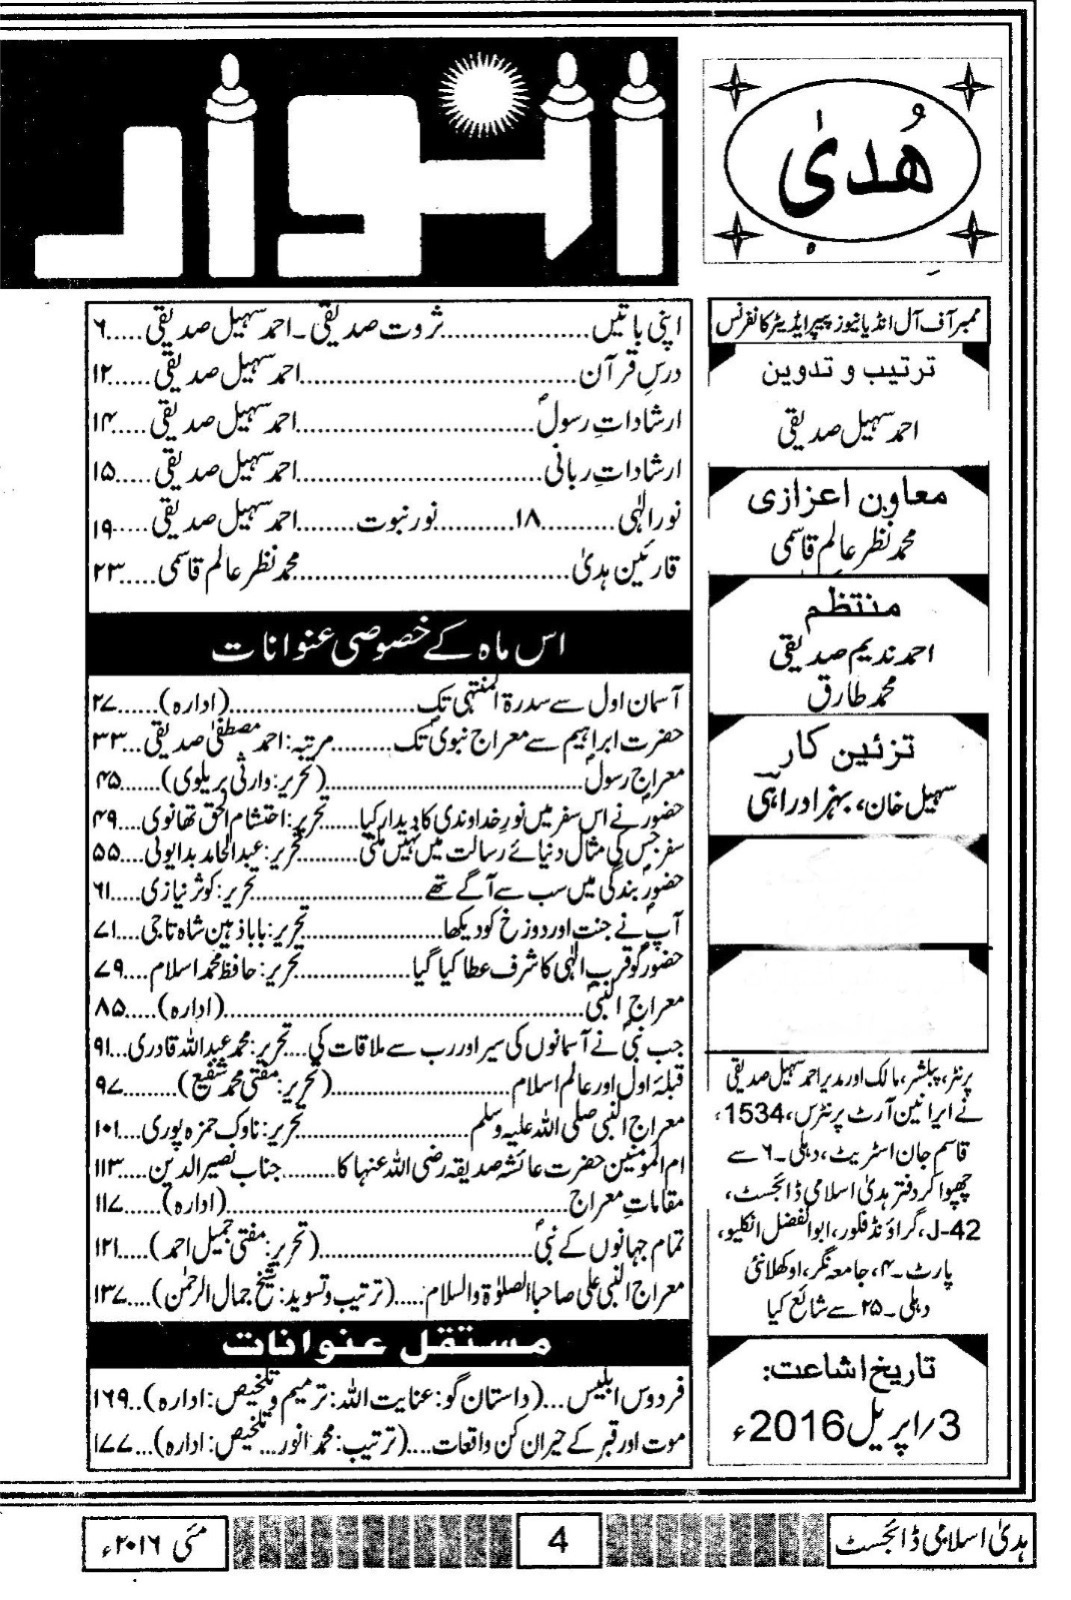 ہُدیٰ
انوار
ممبر آف آل انڈیا نیوز پیپر ایڈیٹر کانفرنس
ترتیب و تدوین
احمد سہیل صدیقی
معاون اعزازی
محمد نظر عالم قاسمی
منتظم
احمد ندیم صدیقی
محمد طارق
تزئین کار
سہیل خان، بہزاد راہی
پرنٹر، پبلشر، مالک اور مدیر احمد سہیل صدیقی
نے ایرانین آرٹ پرنٹرس، 1534،
قاسم جان اسٹریٹ، دہلی۔۶ سے
چھپوا کر دفتر ہدیٰ اسلامی ڈائجسٹ،
J-42، گراؤنڈ فلور، ابوالفضل انکلیو،
پارٹ۔۴، جامعہ نگر، اوکھلا نئی
دہلی۔۲۵ سے شائع کیا
تاریخ اشاعت:
3/اپریل 2016ء
اپنی باتیں....................ثروت صدیقی۔احمد سہیل صدیقی.....۶
درسِ قرآن....................احمد سہیل صدیقی......۱۲
ارشاداتِ رسولؐ....................احمد سہیل صدیقی.....۱۴
ارشاداتِ ربانی....................احمد سہیل صدیقی.....۱۵
نور الٰہی..........۱۸..........نور نبوت........احمد سہیل صدیقی......۱۹
قارئین ہدیٰ....................محمد نظر عالم قاسمی.....۲۳
اس ماہ کے خصوصی عنوانات
آسمان اول سے سدرۃ المنتہیٰ تک....................(ادارہ)......۲۷
حضرت ابراہیمؑ سے معراج نبویؐ تک.........مرتبہ: احمد مصطفیٰ صدیقی...۳۳
معراج رسولؐ....................(تحریر: وارثی بریلوی).....۴۵
حضورؐ نے اس سفر میں نورِ خداوندی کا دیدار کیا.....تحریر: احتشام الحق تھانوی....۴۹
سفر جس کی مثال دنیائے رسالت میں نہیں ملتی.........تحریر: عبدالحامد بدایونی....۵۵
حضورؐ بندگی میں سب سے آگے تھے....................تحریر: کوثر نیازی....۶۱
آپؐ نے جنت اور دوزخ کو دیکھا....................تحریر: بابا ذہین شاہ تاجی....۷۱
حضورؐ کو قرب الٰہی کا شرف عطا کیا گیا.............تحریر: حافظ محمد اسلام....۷۹
معراج النبیؐ....................(ادارہ).....۸۵
جب نبیؐ نے آسمانوں کی سیر اور رب سے ملاقات کی....تحریر: محمد عبداللہ قادری...۹۱
قبلۂ اول اور عالم اسلام....................(تحریر: مفتی محمد شفیع).........۹۷
معراج النبی صلی اللہ علیہ وسلم....................تحریر: ناوک حمزہ پوری....۱۰۱
ام المومنین حضرت عائشہ صدیقہ رضی اللہ عنہا کا........جناب نصیرالدین....۱۱۳
مقاماتِ معراج....................(ادارہ)......۱۱۷
تمام جہانوں کے نبیؐ....................(تحریر: مفتی جمیل احمد).....۱۲۱
معراج النبی علی صاحبا الصلوٰۃ والسلام.....(ترتیب و تسوید: شیخ جمال الرحمٰن)....۱۳۷
مستقل عنوانات
فردوس ابلیس...(داستان گو: عنایت اللہ: ترمیم و تلخیص: ادارہ)..۱۶۹
موت اور قبر کے حیران کن واقعات....(ترتیب: محمد انور...تلخیص: ادارہ)...۱۷۷
ہدیٰ اسلامی ڈائجسٹ
4
مئی ۲۰۱۶ء